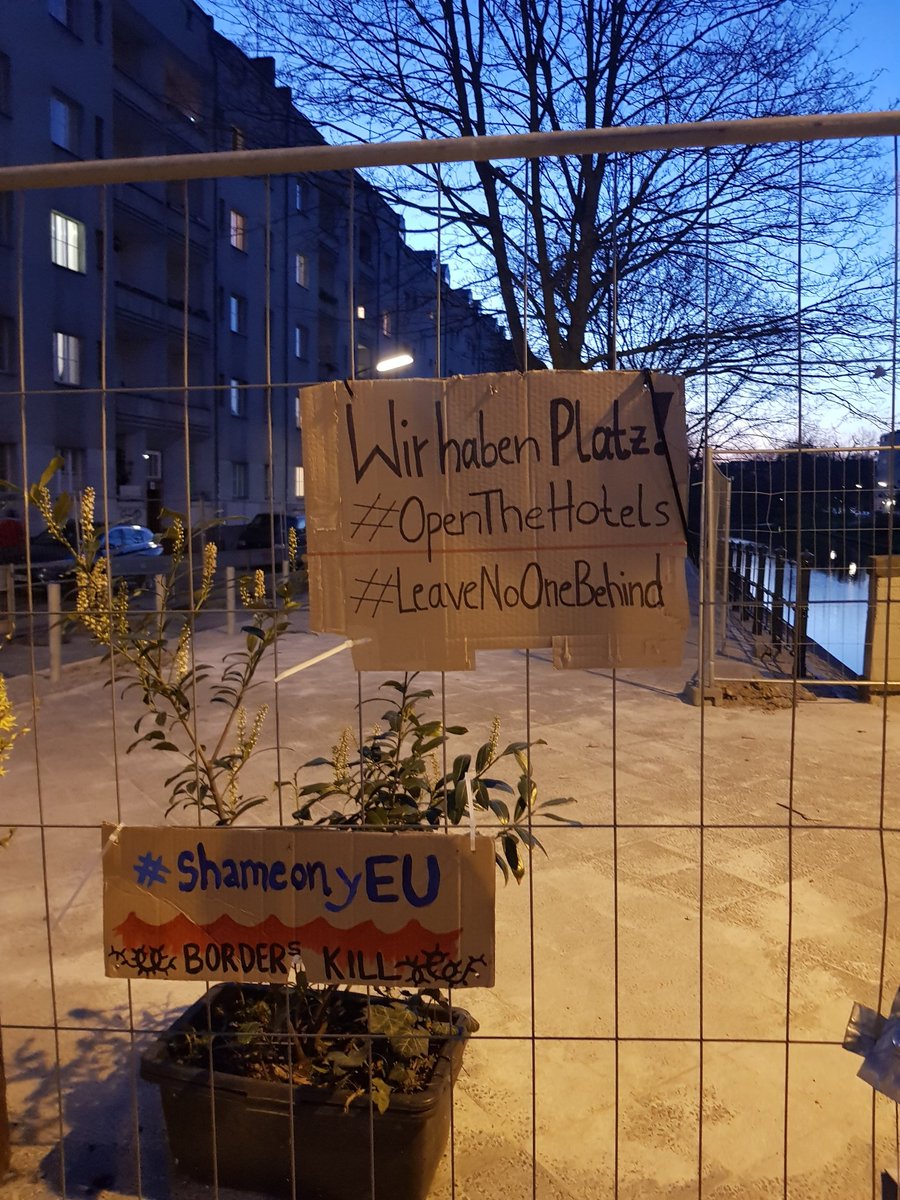 Wir haben Platz!
#OpenTheHotels
#LeaveNoOneBehind
#ShameonyEU
BORDERS KILL